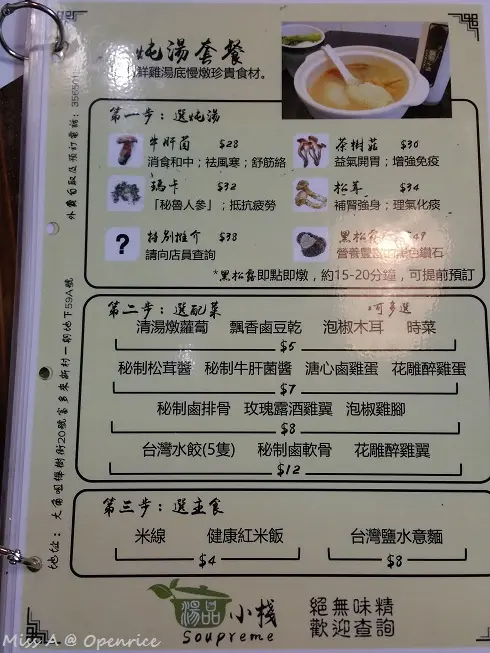 炖湯套餐
鮮雞湯底慢燉珍貴食材。
第一步：選炖湯
牛肝菌 $28
消食和中；祛風寒；舒筋絡
茶樹菇 $30
益氣開胃；增強免疫
瑪卡 $32
「秘魯人參」；抵抗疲勞
松茸 $34
補腎強身；理氣化痰
特別推介 $38
請向店員查詢
黑松露
營養豐富
色鑽石
*黑松露即點即燉，約15-20分鐘，可提前預訂
第二步：選配菜
可多選
清湯燉蘿蔔 飄香鹵豆乾 泡椒木耳 時菜
$5
秘制松茸醬 秘制牛肝菌醬 溏心鹵雞蛋 花雕醉雞蛋
$7
秘制鹵排骨 玫瑰露酒雞翼 泡椒雞腳
$8
台灣水餃(5隻) 秘制鹵軟骨 花雕醉雞翼
$12
第三步：選主食
米線 健康紅米飯
$4
台灣鹽水意麵
$8
湯品小棧
Soupreme
絕無味精
歡迎查詢
外賣自取及預訂電話：
地址：大角咀樺樹街20號富多來新村一期地下59A號
Miss A @ Openrice